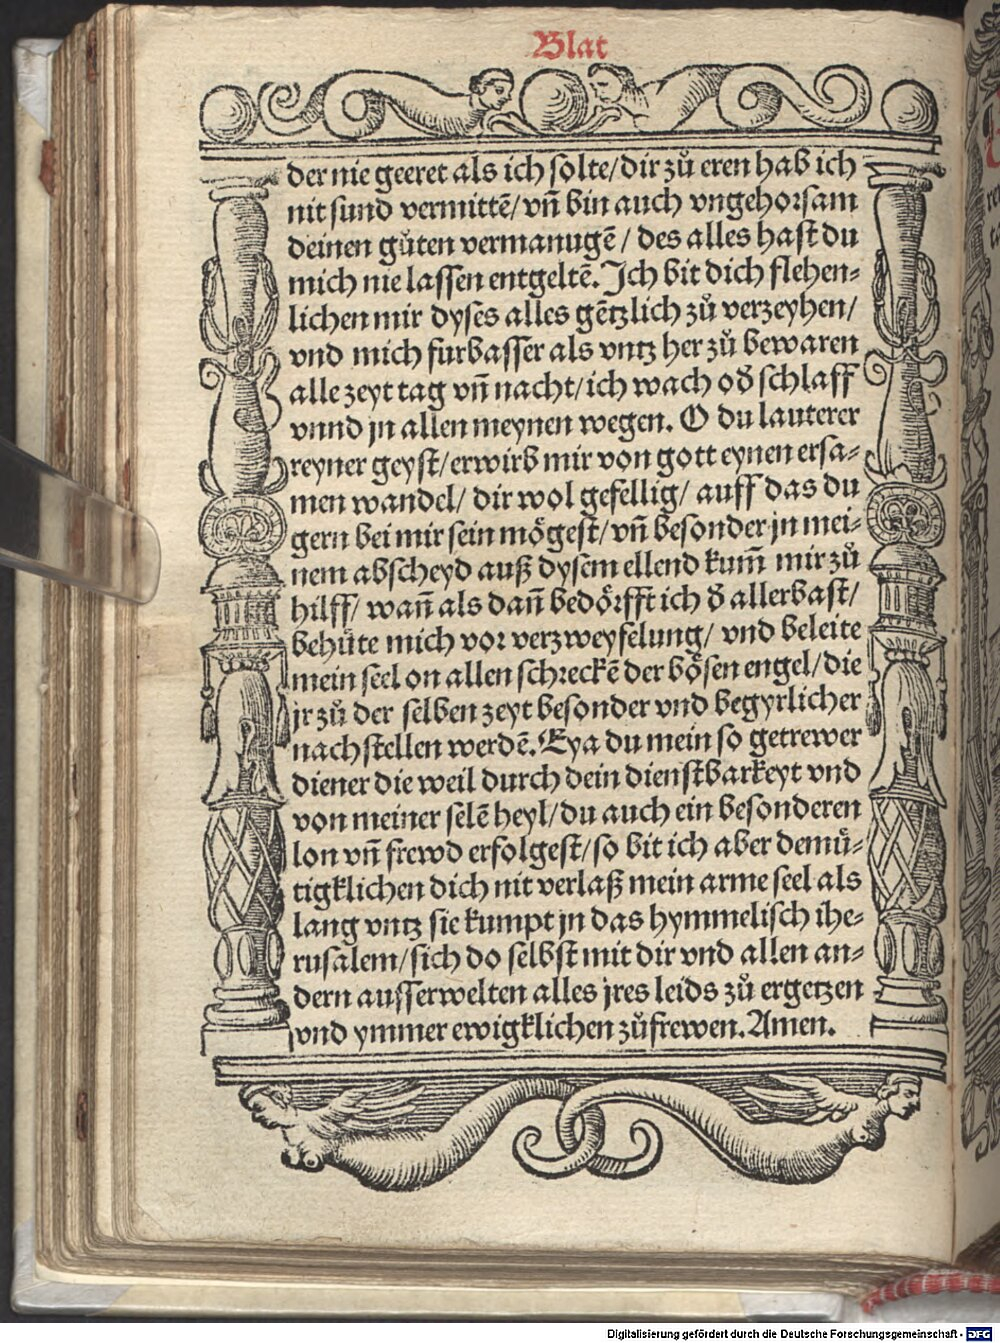 Blat
der nie geeret als ich solte/dir zuͦ eren hab ich
nit sund vermittē/vñ bin auch vngehorsam
deinen guͦten vermanugē / des alles hast du
mich nie lassen entgeltē. Ich bit dich flehen-
lichen mir dyses alles gētzlich zuͦ verzeyhen/
vnd mich furbasser als vntz her zuͦ bewaren
alle zeyt tag vñ nacht/ich wach od̄ schlaff
vnnd jn allen meynen wegen. O du lauterer
reyner geyst/erwirb mir von gott eynen ersa-
men wandel/ dir wol gefellig/ auff das du
gern bei mir sein moͤgest/vñ besonder jn mei-
nem abscheyd auß dysem ellend kum̄ mir zuͦ
hilff/ wañ als dañ bedoͤrfft ich d̄ allerbast/
behuͤte mich vor verzweyfelung/ vnd beleite
mein seel on allen schreckē der boͤsen engel/die
jr zuͦ der selben zeyt besonder vnd begyrlicher
nachstellen werdē. Eya du mein so getrewer
diener die weil durch dein dienstbarkeyt vnd
von meiner selē heyl/du auch ein besonderen
lon vñ frewd erfolgest/so bit ich aber demuͤ-
tigklichen dich nit verlaß mein arme seel als
lang vntz sie kumpt jn das hymmelisch ihe-
rusalem/sich do selbst mit dir vnd allen an-
dern ausserwelten alles jres leids zuͦ ergetzen
vnd ymmer ewigklichen zuͦ frewen. Amen.
Digitalisierung gefördert durch die Deutsche Forschungsgemeinschaft - DFG